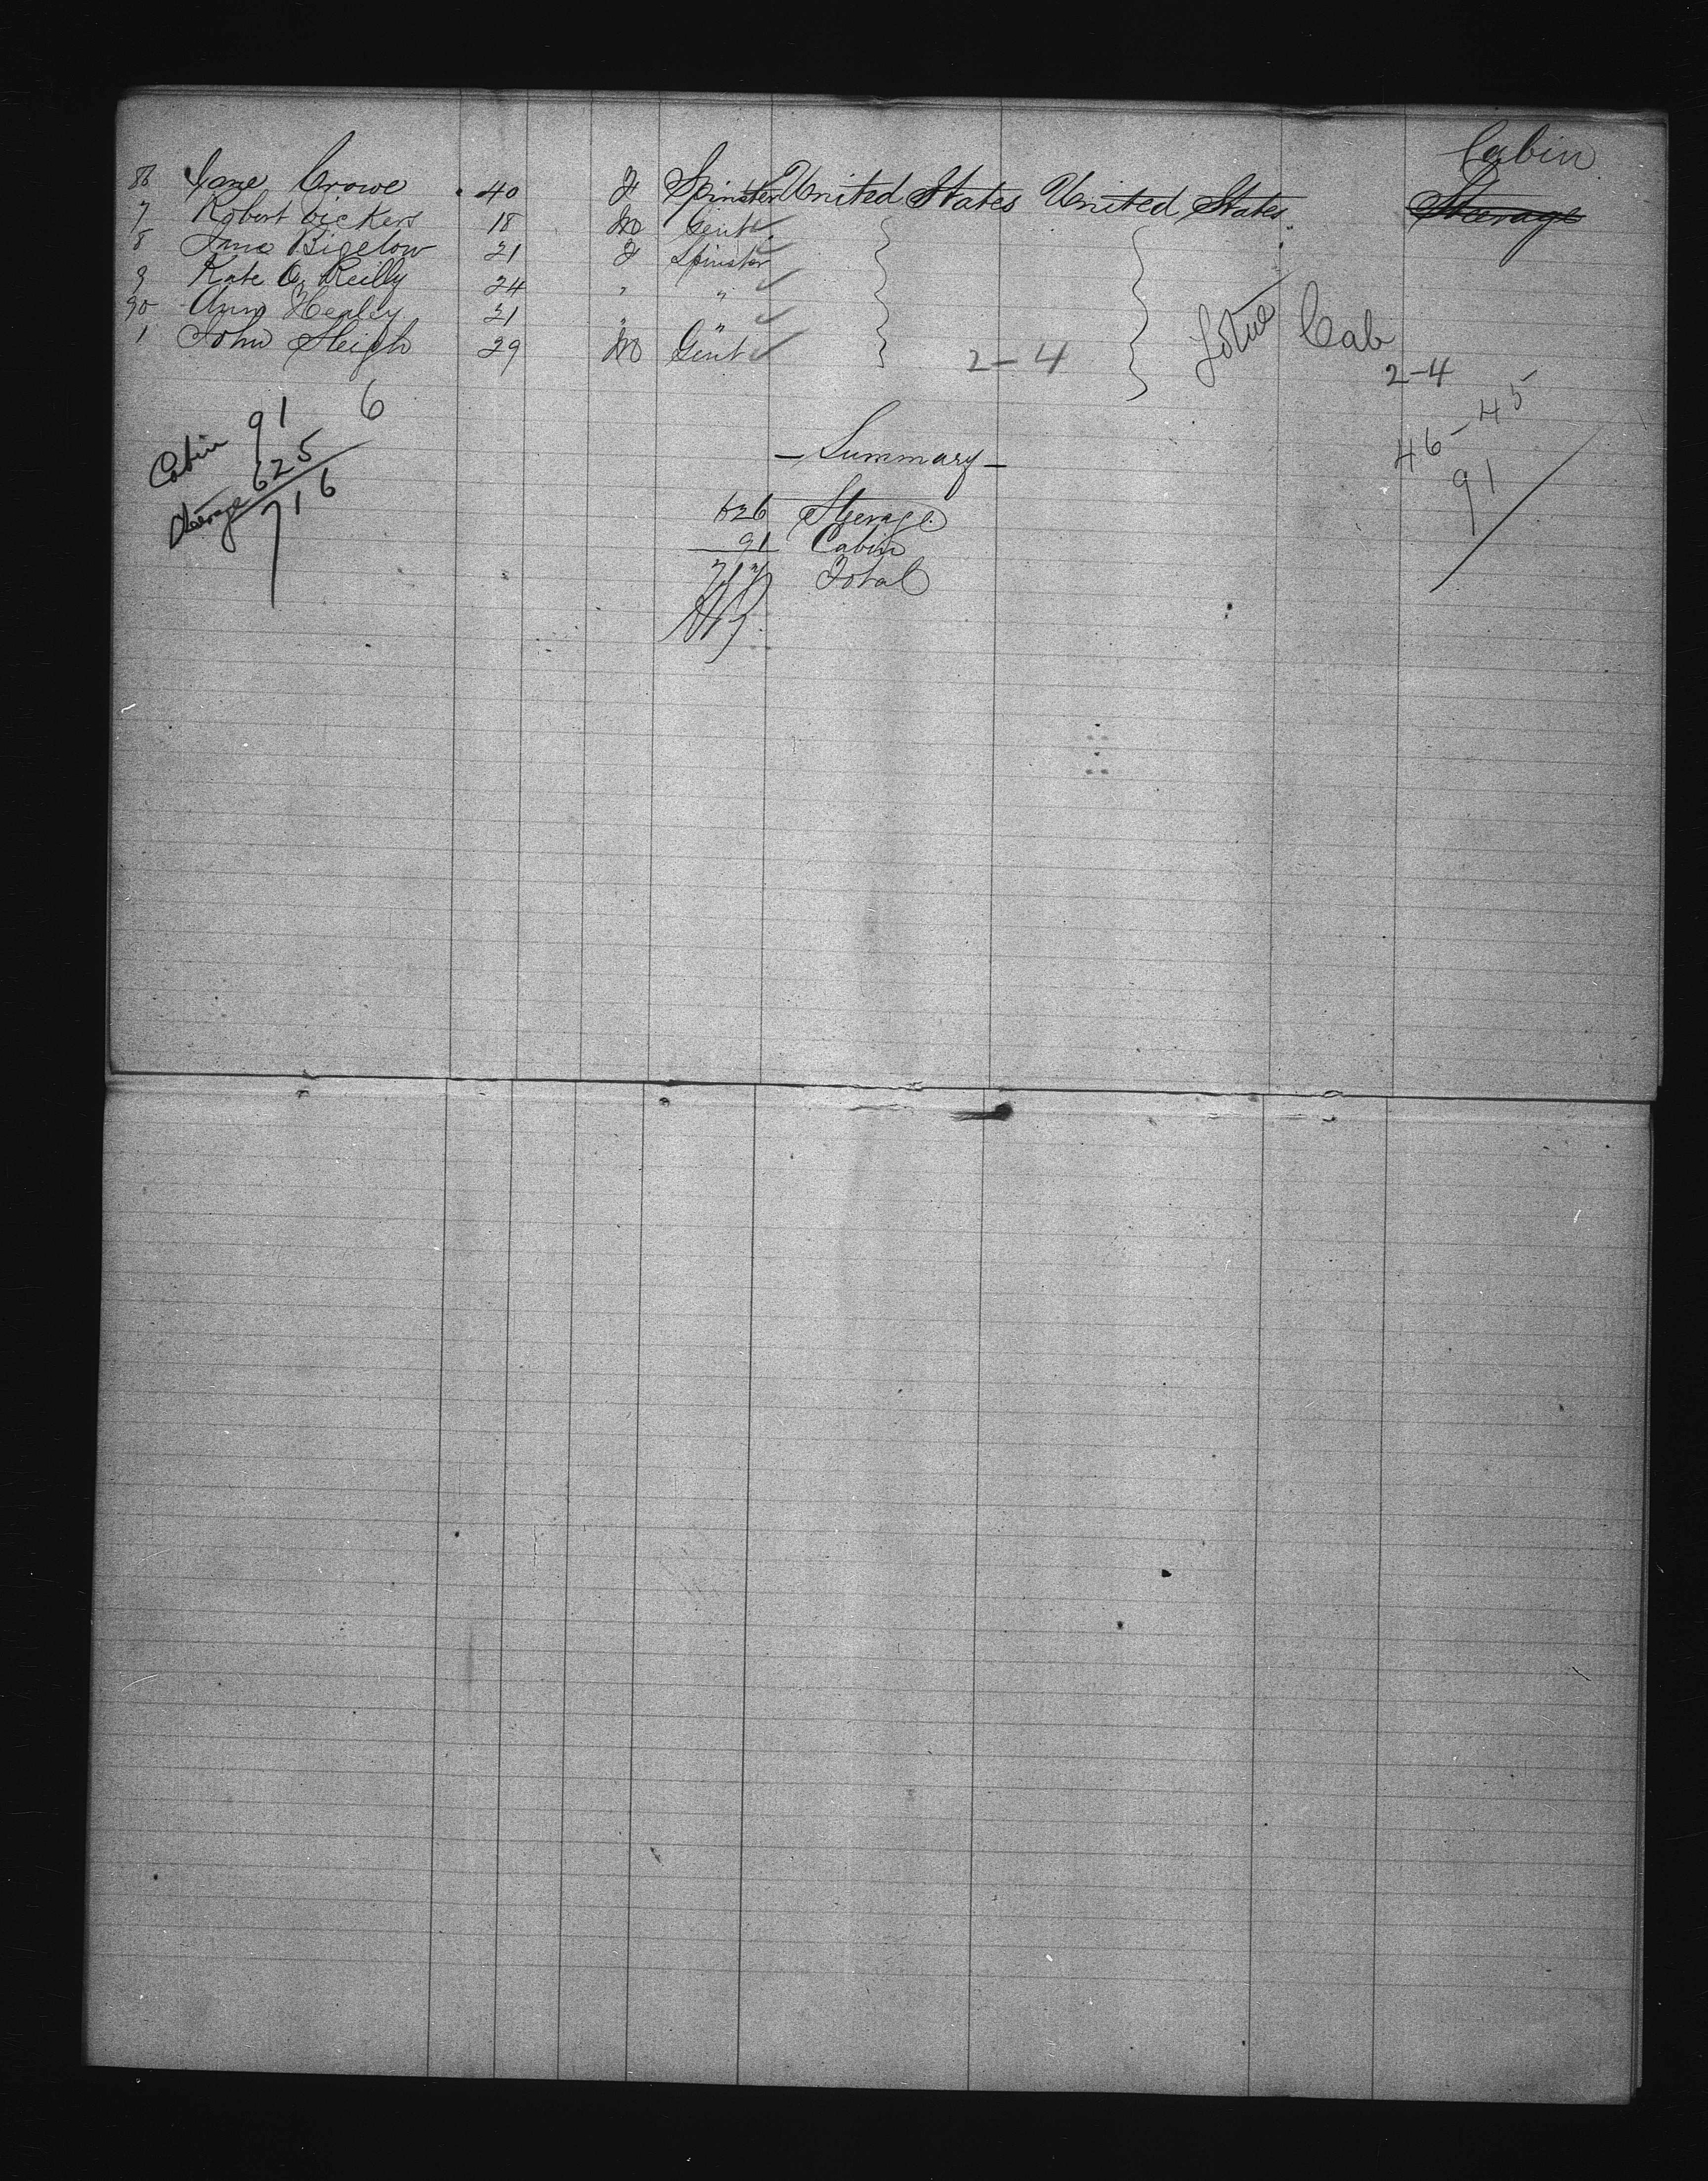 Cabin
86 Jane Crowe 40 F Spinster United States United States Steerage
7 Robert Vickers 18 M Gent
8 Jane Bigelow 21 F Spinster
9 Kate O'Reilly 24 " "
90 Ann Healey 21 " "
1 John Sleigh 29 M Gent
2-4
Cab
2-4
46-45
91
6
Cabin 91
Steerage 625
716
- Summary -
626 Steerage
91 Cabin
717 Total